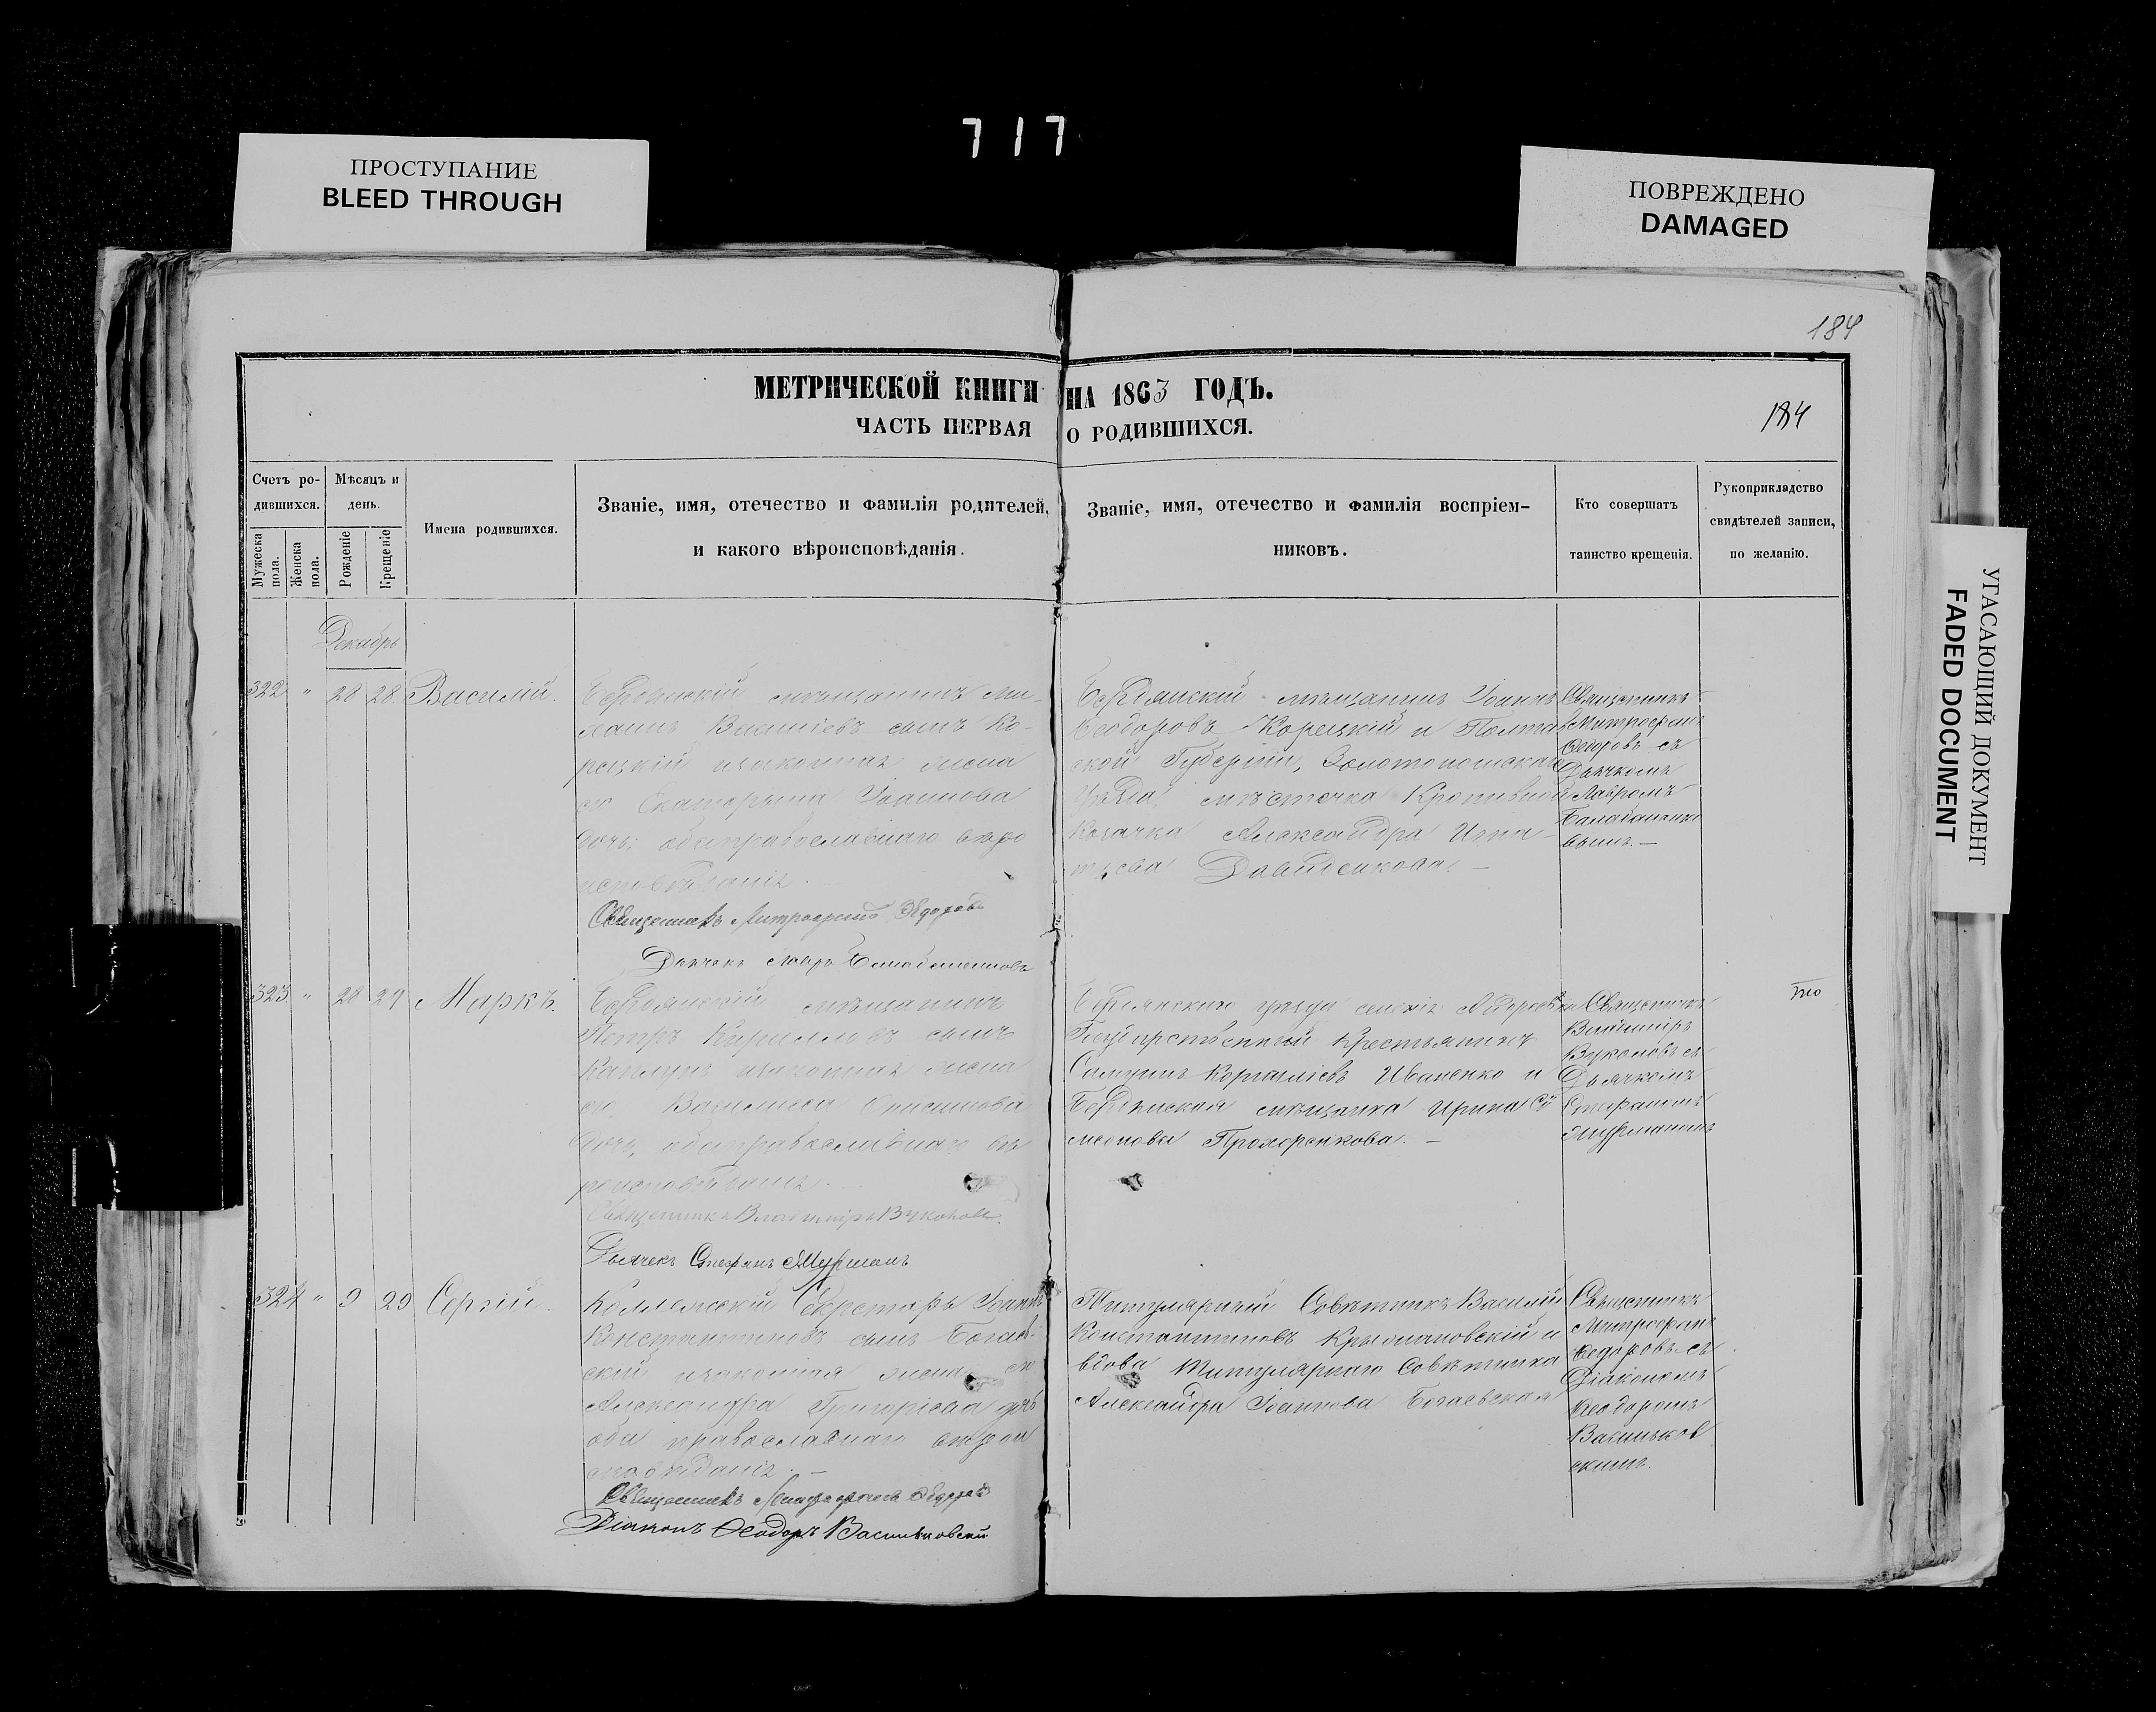 717
ПРОСТУПАНИЕ
BLEED THROUGH
ПОВРЕЖДЕНО
DAMAGED
УГАСАЮЩИЙ ДОКУМЕНТ
FADED DOCUMENT
184
184
МЕТРИЧЕСКОЙ КНИГИ НА 1863 ГОДЪ.
ЧАСТЬ ПЕРВАЯ О РОДИВШИХСЯ.
Счетъ ро-
дившихся.
Мужеска пола.
Женска пола.
Мѣсяцъ и
день.
Рожденіе
Крещеніе
Имена родившихся.
Званіе, имя, отечество и фамилія родителей,
и какого вѣроисповѣданія.
Званіе, имя, отечество и фамилія воспріем-
никовъ.
Кто совершатъ
таинство крещенія.
Рукоприкладство
свидѣтелей записи,
по желанію.
Декабрь
322 " 28 28 Василій.
Бердянскій мѣщанинъ
Василіевъ сынъ Ко-
рецкій и законная жена
его Екатерина Іоаннова
дочь; оба православнаго вѣро
исповѣданія.
Священникъ Митрофанъ Ѳедоровъ
Бердянскій мѣщанинъ Іоаннъ
Ѳеодоровъ Корецкій и Полтав
ской Губерніи, Золотоношскаго
Уѣзда, мѣстечка Кропивной
Козачка Александра Игна-
тьева Давиденкова. —
Священникъ
Митрофанъ
Ѳедоровъ съ
Дьячкомъ
Лавромъ
323 " 28 29 Маркъ.
Бердянскій мѣщанинъ
Петръ Кирилловъ сынъ
и законная жена
его Василисса
дочь, оба православнаго вѣ
роисповѣданія. —
Священникъ Владиміръ Вуколовъ.
Дьячекъ Стефанъ Мурманъ
Бердянскаго уѣзда селенія
Государственный Крестьянинъ
Самуилъ Корниліевъ Иваненко и
Бердянская мѣщанка Ирина Си
меонова Прохоренкова. —
Священникъ
Владиміръ
Вуколовъ съ
Дьячкомъ
Стефаномъ
Мурманомъ
324 " 9 29 Сергій.
Коллежскій Секретарь Іоаннъ
Константиновъ сынъ Богаев-
скій и законная жена его
Александра Григоріева дочь
оба православнаго вѣрои
сповѣданія. —
Священникъ Митрофанъ Ѳедоровъ
Діаконъ Ѳеодоръ Васильковскій
Титулярный Совѣтникъ Василій
Константиновъ Крыжановскій и
вдова Титулярнаго Совѣтника
Александра Іоаннова Богаевская
Священникъ
Митрофан
Ѳедоровъ съ
Діакономъ
Ѳеодоромъ
Васильков
скимъ.